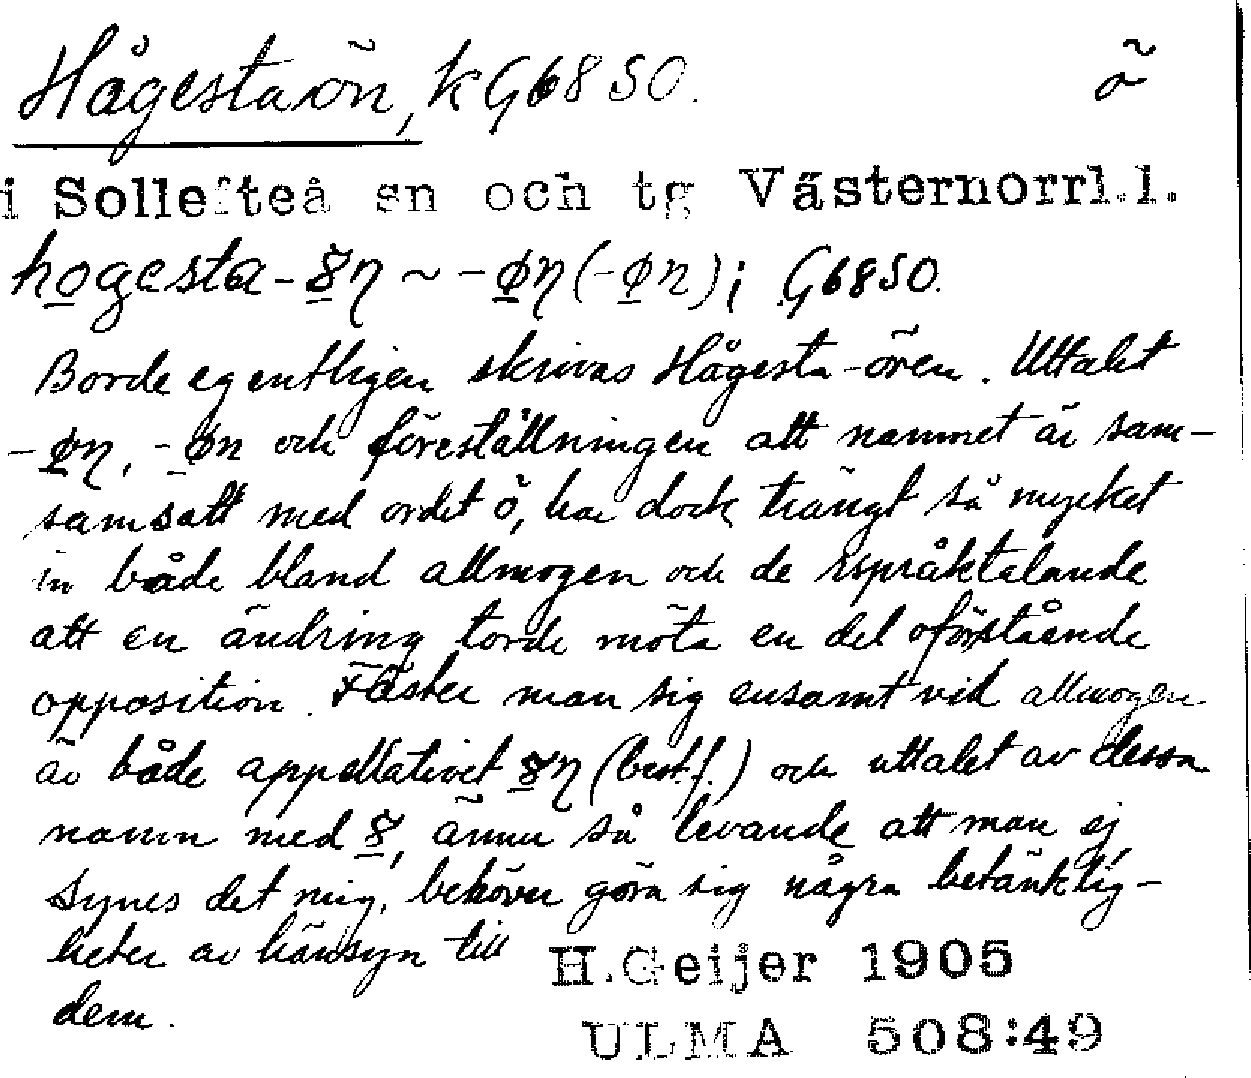 Hågestaön, k G68 SO. ö
i Sollefteå sn och tg Västernorrl.l.
hogesta- ~ -øŋ (-øn); G68 SO.
Borde egentligen skrivas Hågesta-ören. Uttalet
-øŋ, -øn och föreställningen att namnet är sam-
samsatt med ordet ö, har dock trängt så mycket
in både bland allmogen och de rspråktalande
att en ändring torde möta en del oförstående
opposition. Fäster man sig ensamt vid allmogen
är både appellativet (best.f.) och uttalet av dessa
namn med , ännu så levande att man ej
synes det mig, behöver göra sig några betänklig-
heter av hänsyn till
dem.
H.Geijer 1905
ULMA 508:49